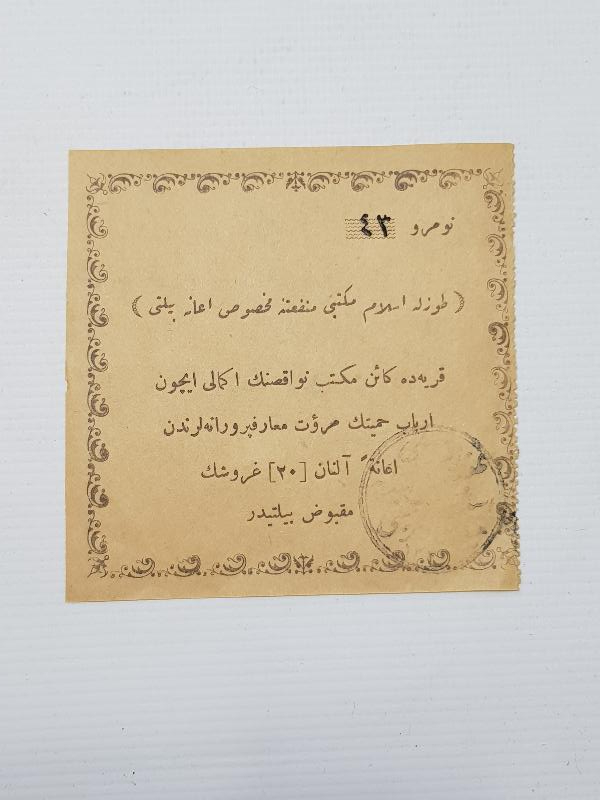 نومرو ٤٣
( طوزله اسلام مكتبی منفعتنه مخصوص اعانه بيلتی )
قريه‌ده كائن مكتب نواقصنك اكمالی ايچون
ارباب حميتك مروّت معارفپرورانه‌لرندن
اعانةً آلنان [٢٠] غروشك
مقبوض بيلتيدر